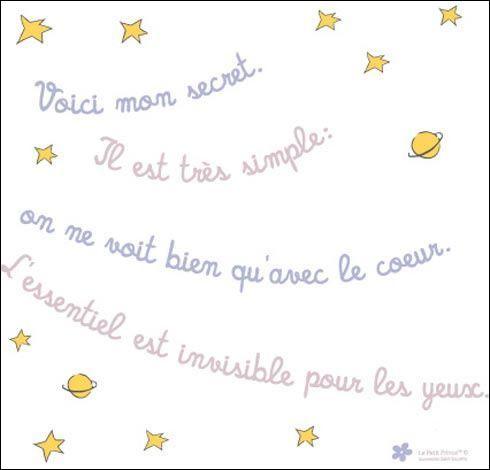 Voici mon secret.
Il est très simple:
on ne voit bien qu'avec le coeur.
L'essentiel est invisible pour les yeux.
Le Petit Prince™ ©